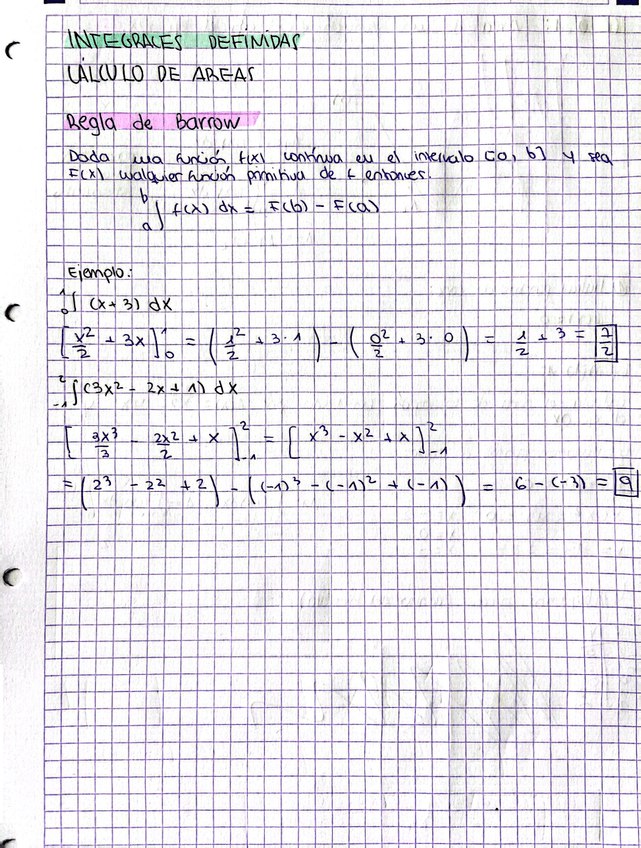 INTEGRALES DEFINIDAS
CÁLCULO DE AREAS
Regla de Barrow
Dada una función f(x) continua en el intervalo [a, b] y sea
F(x) cualquier función primitiva de f entonces.
b∫a f(x) dx = F(b) - F(a)
Ejemplo:
1∫0 (x+3) dx
[x²/2 + 3x]¹₀ = (1²/2 + 3·1) - (0²/2 + 3·0) = 1/2 + 3 = 7/2
2∫-1 (3x² - 2x + 1) dx
[3x³/3 - 2x²/2 + x]²₋₁ = [x³ - x² + x]²₋₁
= (2³ - 2² + 2) - ((-1)³ - (-1)² + (-1)) = 6 - (-3) = 9